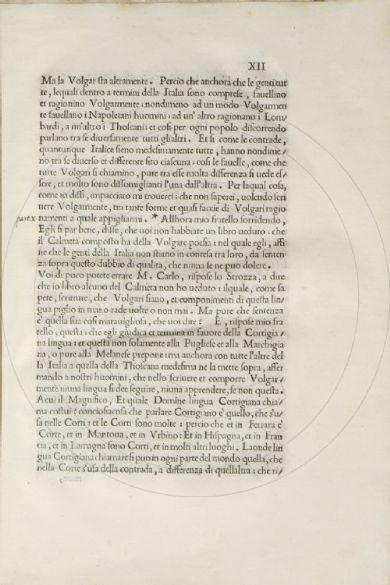 XII
Ma la Volgar sta altramente. Percio che anchora che le genti tut
te, lequali dentro a termini della Italia sono comprese, fauellino
et ragionino Volgarmente: nondimeno ad un modo Volgarmen
te fauellano i Napoletani huomini: ad un'altro ragionano i Lom/
bardi, a un'altro i Thoscani: et cosi per ogni popolo discorrendo
parlano tra se diuersamente tutti glialtri. Et si come le contrade,
quantunque Italice sieno medesimamente tutte, hanno nondime/
no tra se diuerso et differente sito ciascuna: cosi le fauelle, come che
tutte Volgari si chiamino, pure tra esse molta differenza si uede es/
sere, et molto sono dissomiglianti l'una dall'altra. Per laqual cosa,
come io dissi, impacciato mi trouerei: che non saperei, uolendo scri
uere Volgarmente, tra tante forme et quasi faccie di Volgari ragio
part.x namenti a quale appigliarmi. * Allhora mio fratello sorridendo,
Egli si par bene, disse, che uoi non habbiate un libro ueduto: che
il Calmeta composto ha della Volgare poesia: nel quale egli, affi
ne che le genti della Italia non stiano in contesa tra loro, da senten
za sopra questo dubbio di qualita, che niuna se ne puo dolere.
Voi di poco potete errare M. Carlo, rispose lo Strozza, a dire
che io libro alcuno del Calmeta non ho ueduto: ilquale, come sa
pete, scritture, che Volgari siano, et componimenti di questa lin/
gua piglio in mano rade uolte o non mai. Ma pure che sentenza
è quella sua cosi marauigliosa, che uoi dite? È, rispose mio fra
tello, questa: che egli giudica et termina in fauore della Cortigia/
na lingua: et questa non solamente alla Pugliese et alla Marchigia
na, o pure alla Melanese prepone: ma anchora con tutte l'altre del
la Italia a quella della Thoscana medesima ne la mette sopra, affer
mando a nostri huomini, che nello scriuere et comporre Volgar/
mente niuna lingua si dee seguire, niuna apprendere, se non questa.
A cui il Magnifico, Et quale Domine lingua Cortigiana chia/
ma costui? conciosiacosa che parlare Cortigiano è quello, che s'u/
sa nelle Corti: et le Corti sono molte: percio che et in Ferrara è
Corte, et in Mantoua, et in Vrbino: Et in Hispagna, et in Fran
cia, et in Lamagna sono Corti, et in molti altri luoghi. Laonde lin
gua Cortigiana chiamare si puo in ogni parte del mondo quella, che
nella Corte s'usa della contrada, a differenza di quellaltra: che ri/